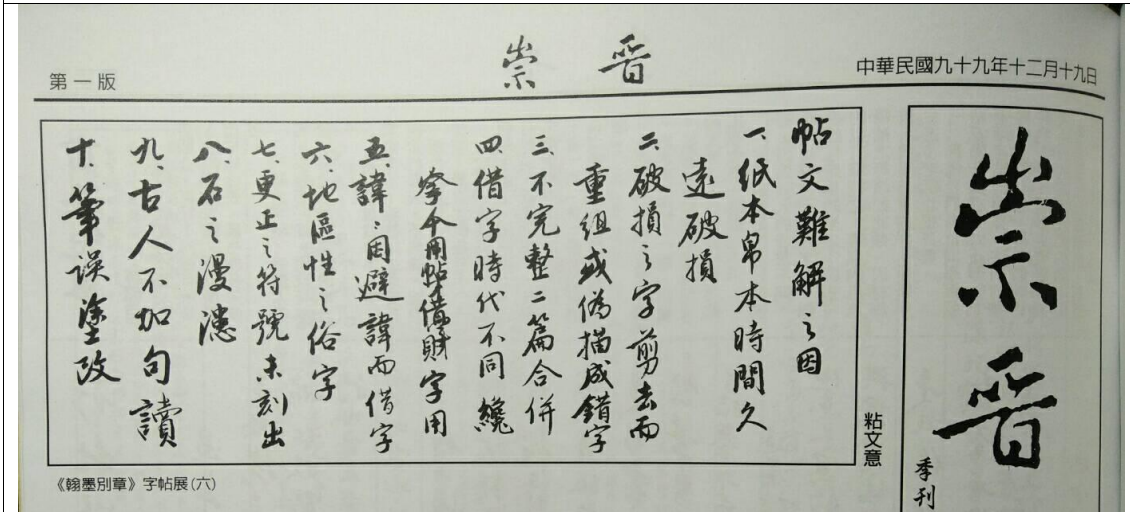 第一版
崇晉
中華民國九十九年十二月十九日
崇晉
季刊
粘文意
帖文難解之因
一、紙本帛本時間久
遠破損
二、破損之字剪去而
重組或偽描成錯字
三、不完整二篇合併
四、借字時代不同纔
字用
五、諱:因避諱而借字
六、地區性之俗字
七、更正之符號未刻出
八、石之漫漶
九、古人不加句讀
十、筆誤塗改
《翰墨別章》字帖展(六)